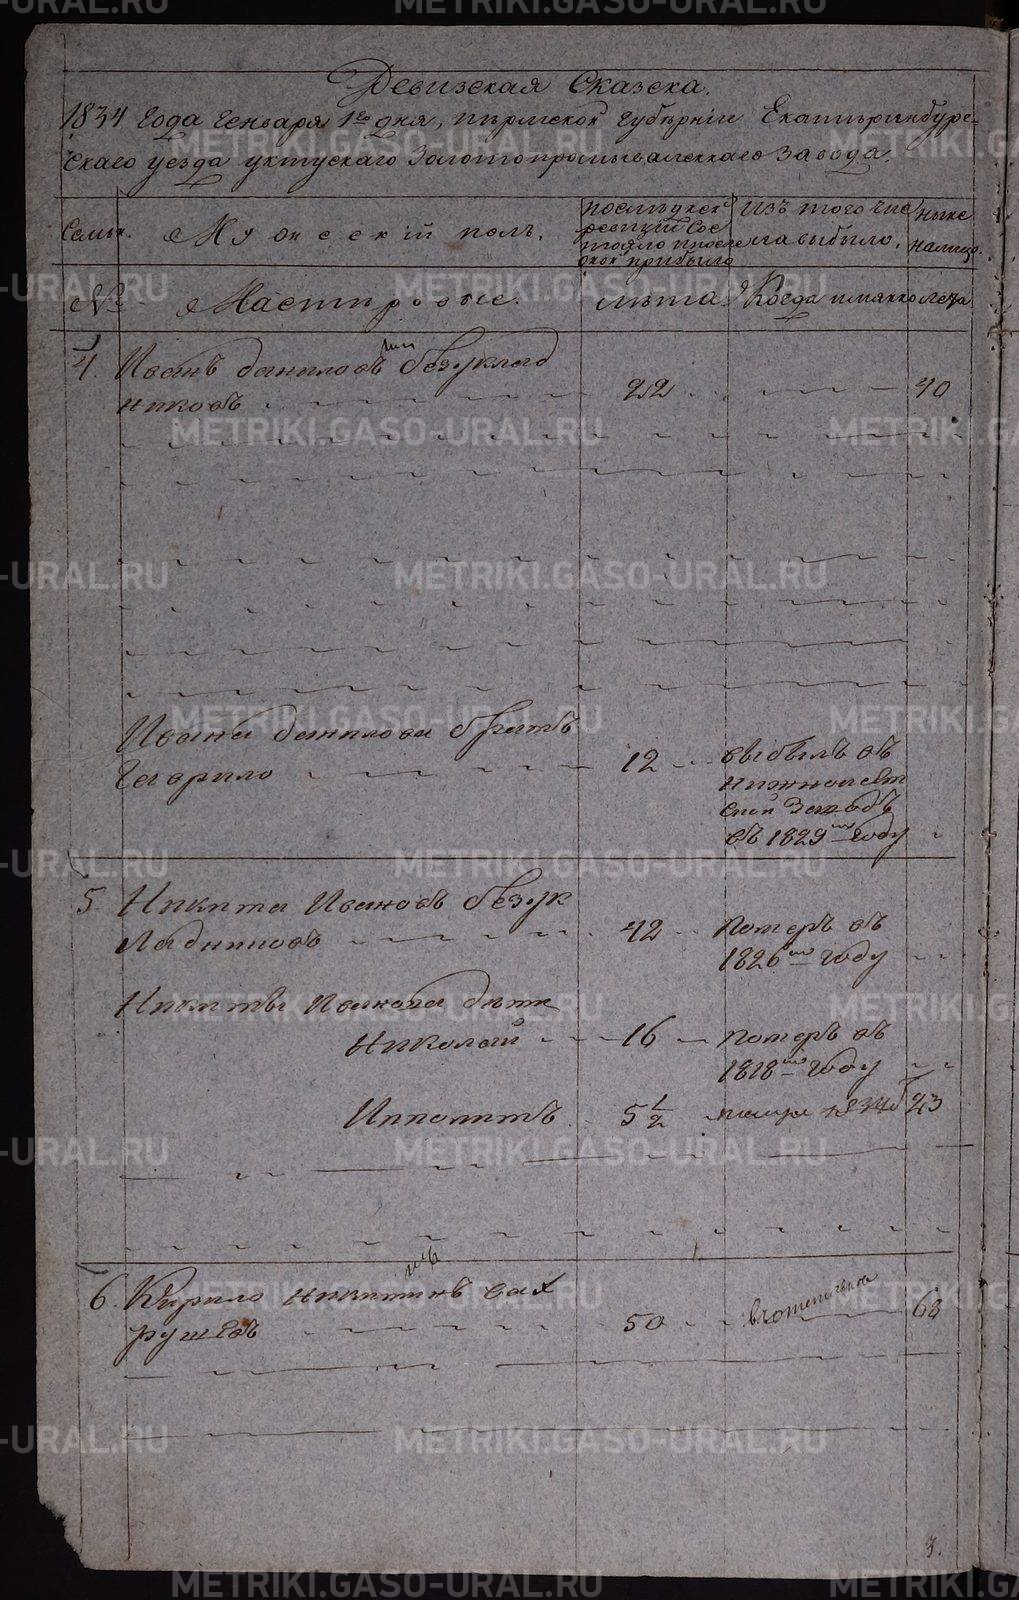 Ревизская Сказска.
1834 Года Генваря 1го дня, пермской Губернiи Екатеринбург=
Скаго уезда уктускаго Золотопромывалекнаго Завода.
Семьи. Мужескiй полъ. последней ревизiи Сос тояло и после оной прибыло Изъ того чис ла выбыло. Ныне налицо.
№ Мастировые. лета Когда имянно лета
4. Иванъ даниловъ безуклад
никовъ 22 40
Ивана данилова братъ
Гаврило 12 выбылъ въ
нижноисет
скiй Заводъ
въ 1829м году
5 Никита Ивановъ безук
ладниковъ 42 Померъ въ
1826м году
Никиты Иванова дети
Николай 16 Померъ въ
1818м году
Ипполитъ 5 1/2 23
6. Кирило никитинъ вах
рушевъ 50 68
3.
METRIKI.GASO-URAL.RU